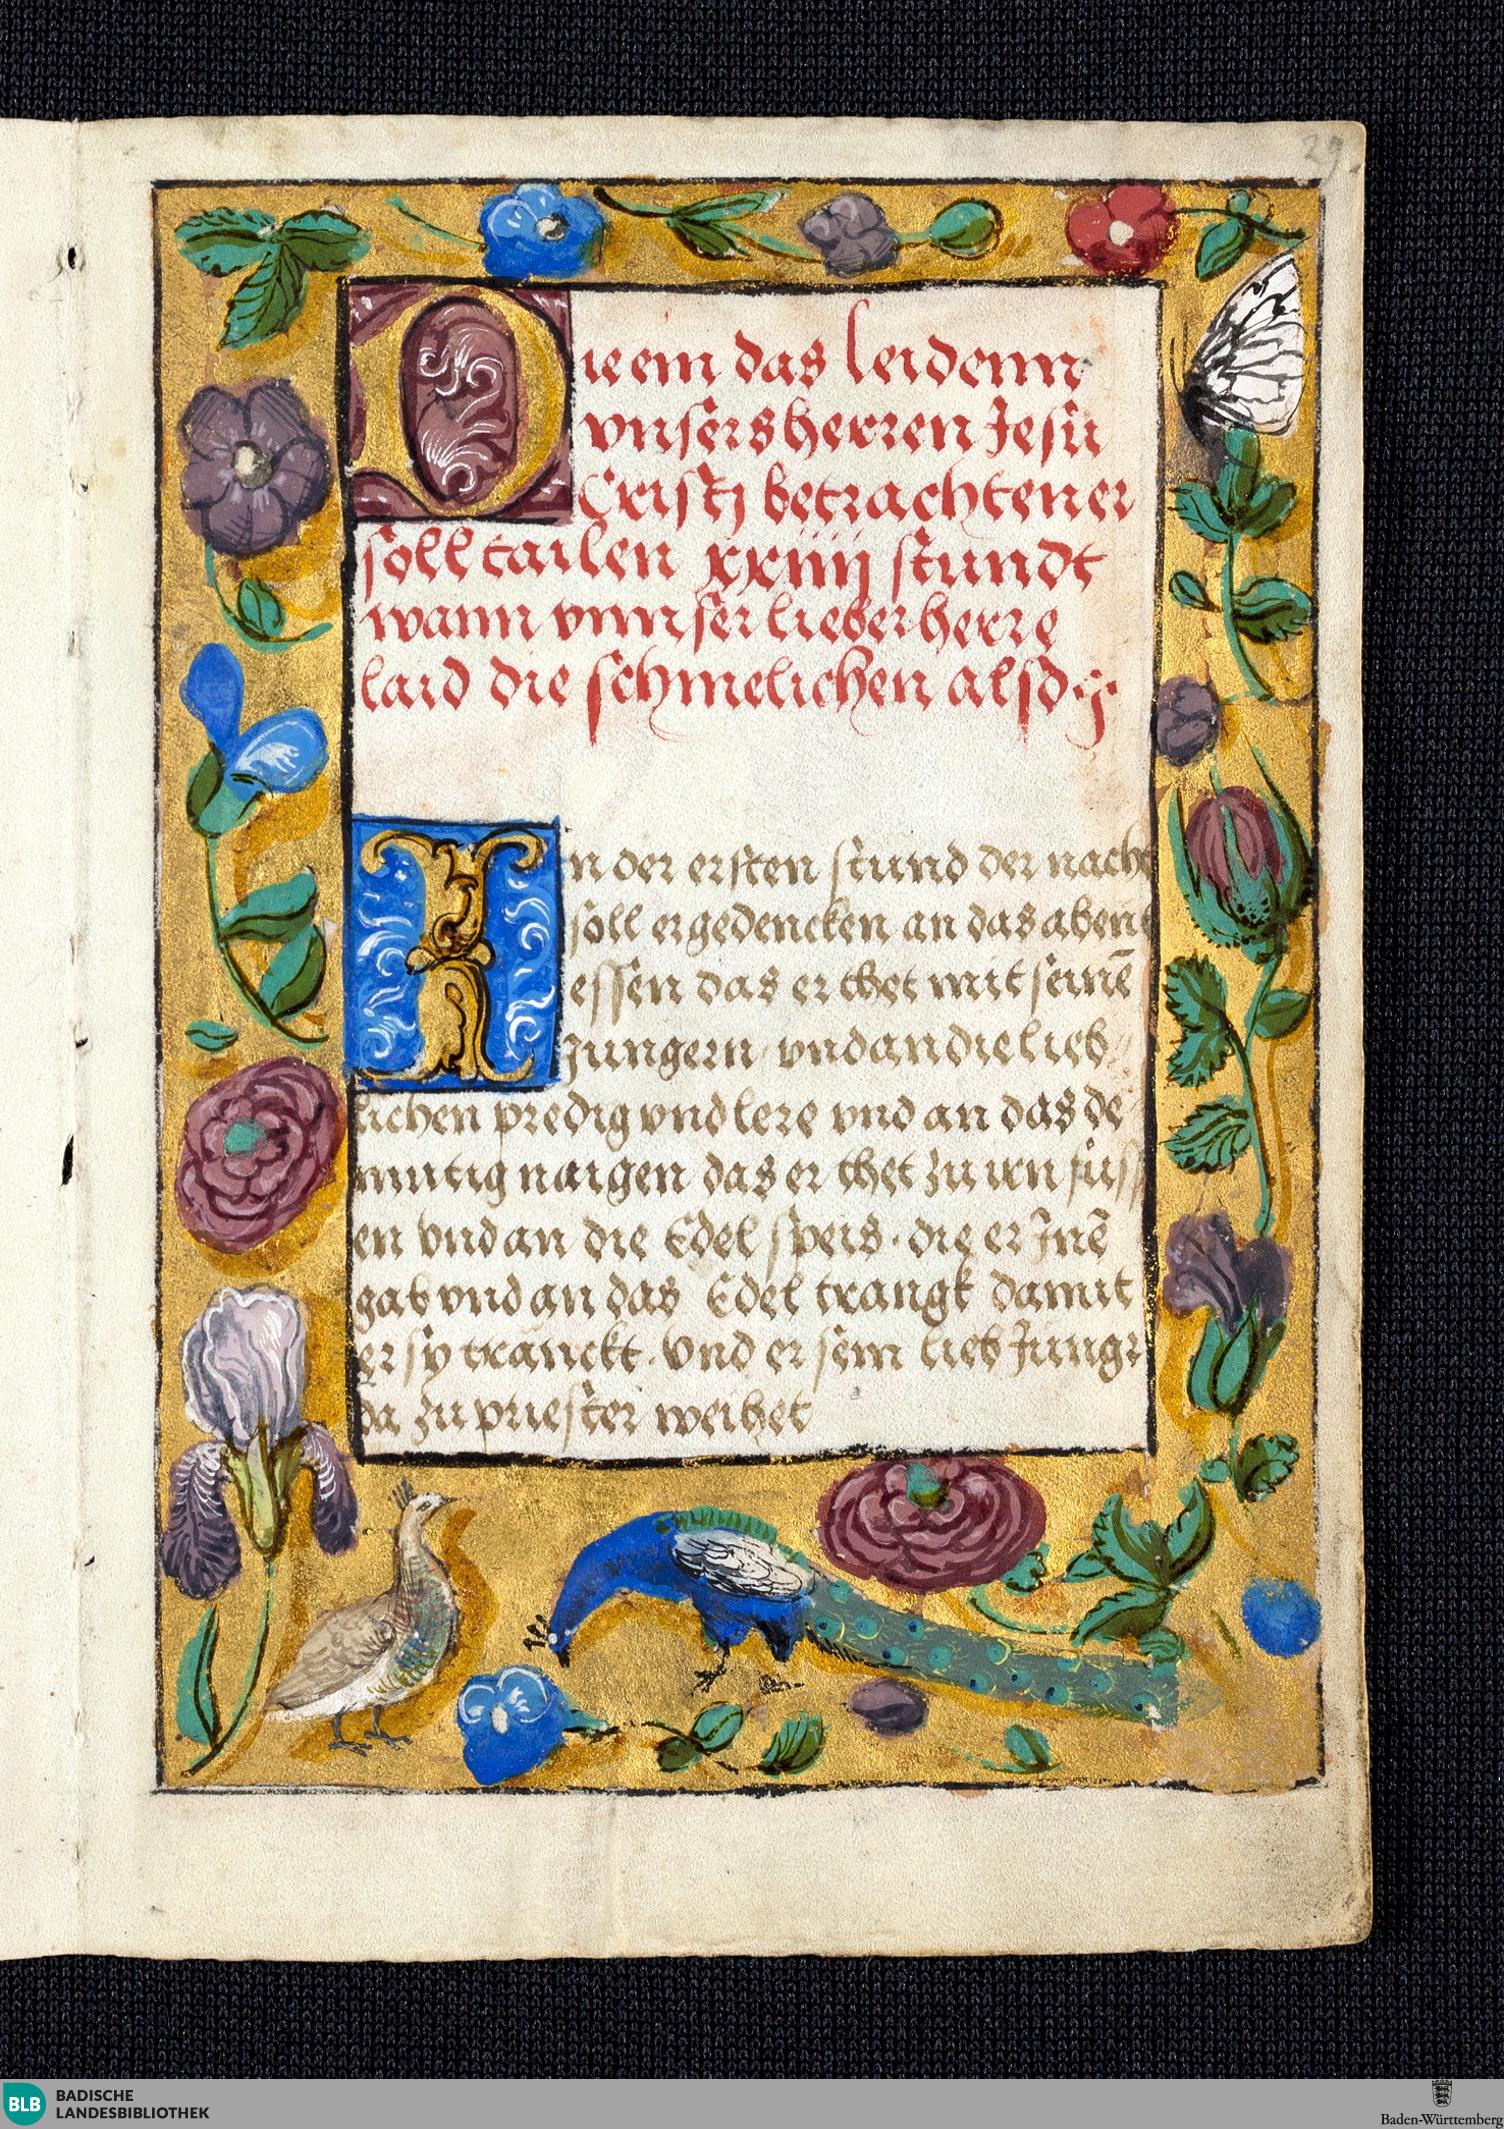 29.
Die ein das leidenn
vnsers herren Jesu
Cristj betrachten er
soll tailen xxiiij stundt
wann vnnser lieber herre
laid die schmelichen alsdɜ
In der ersten stund der nacht
soll er gedencken an das abent
essen das er thet mit seinē
Jungern vnd an die lieb
lichen predig vnd lere vnd an das de
mutig naigen das er thet zu irn füss
en vnd an die Edel speis · die er Jnē
gab vnd an das Edel trangk damit
er sy tranckt · Vnd er sein lieb Jungr
da zu priester weihet
BLB BADISCHE
LANDESBIBLIOTHEK
Baden-Württemberg